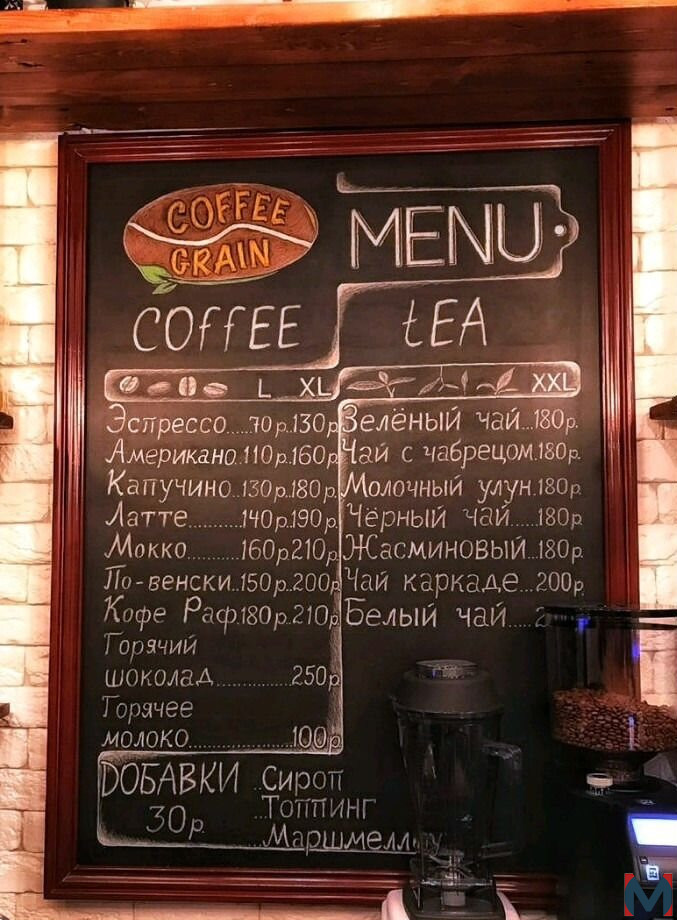 COFFEE
GRAIN
MENU
COFFEE
L XL
Эспрессо.....70р.130р
Американо..110р.160р
Капучино..130р.180р
Латте..........140р.190р.
Мокко..........160р210р
По-венски..150р..200р
Кофе Раф.180р.210р
Горячий
шоколад..............250р
Горячее
молоко...................100р
tEA
XXL
Зелёный чай..180р.
Чай с чабрецом.180р.
Молочный улун.180р
Чёрный чай.....180р
Жасминовый...180р.
Чай каркаде...200р.
Белый чай.....
ДОБАВКИ
30р
..Сироп
...Топпинг
...Маршмеллоу
M